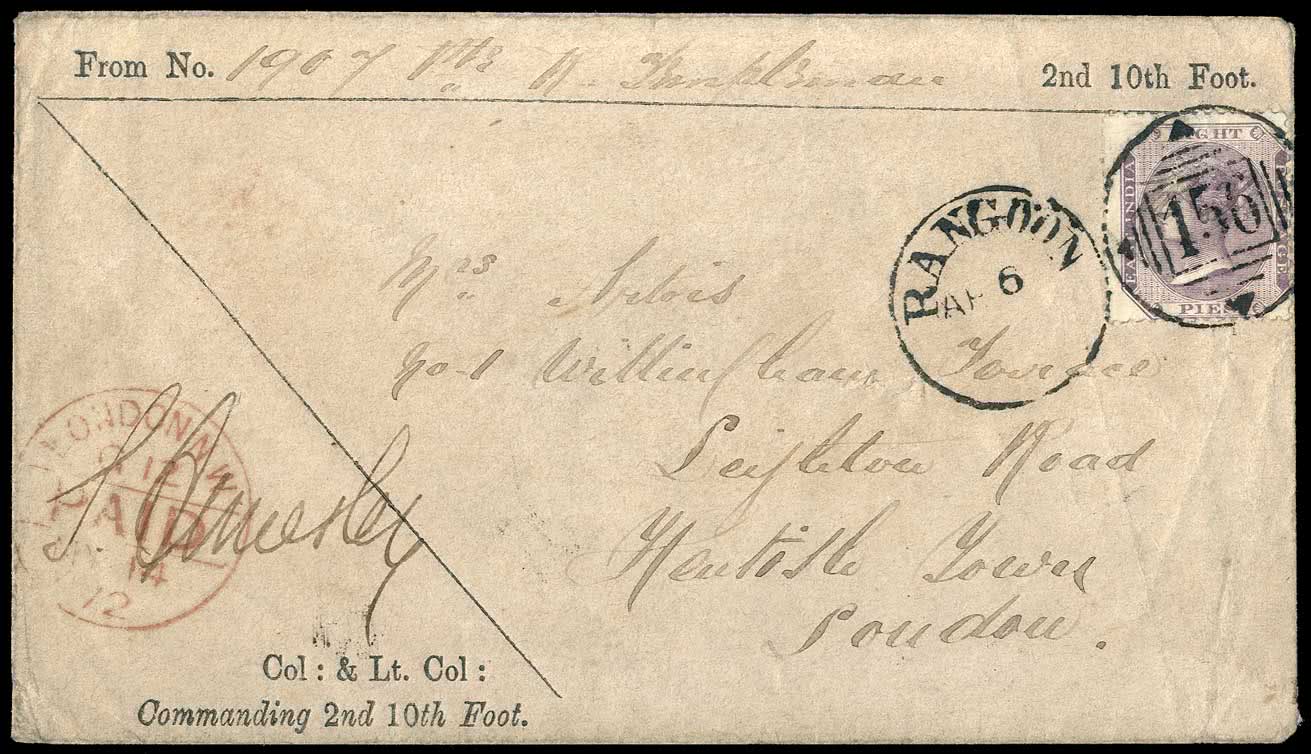 From No. 1907 Pte 2nd 10th Foot.
EIGHT
EAST INDIA
PIES
156
RANGOON
AP 6
Mrs
No-1 Willingham Terrace
Leighton Road
Kentish Town
London.
LONDON N W
12
PAID
14
12
Col: & Lt. Col:
Commanding 2nd 10th Foot.